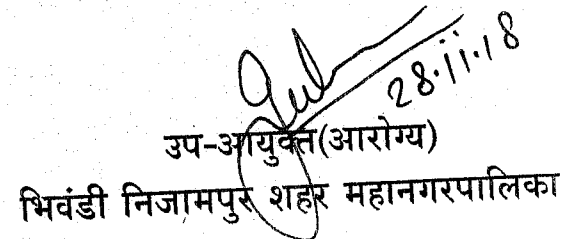 28.11.18
उप-आयुक्त(आरोग्य)
भिवंडी निजामपुर शहर महानगरपालिका